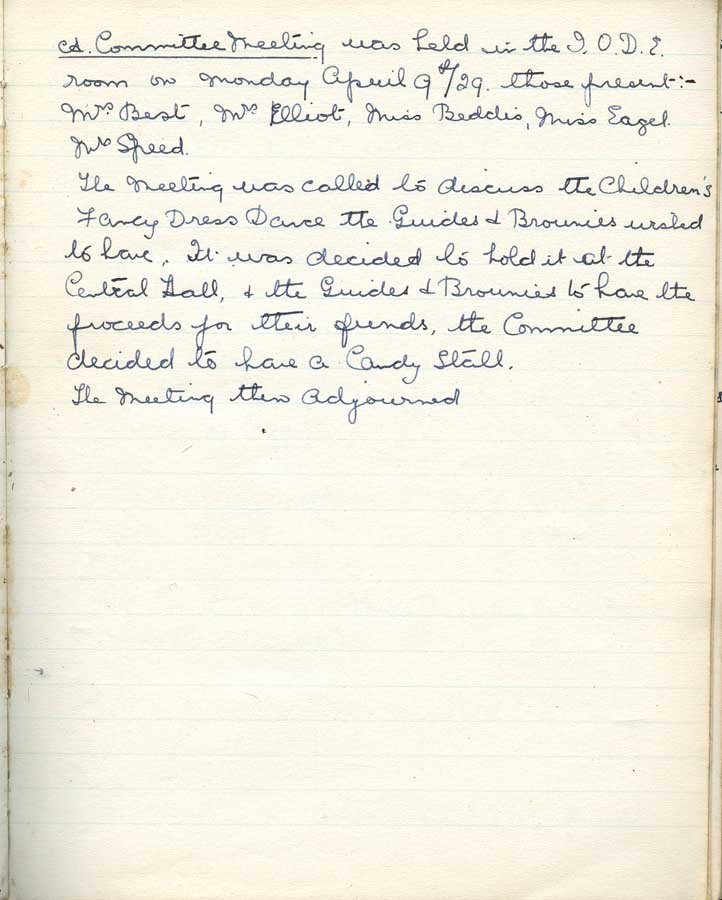 A. Committee Meeting was held in the I.O.D.E.
room on Monday April 9th/29. those present:-
Mrs Best, Mrs Elliot, Miss Beddis, Miss Eagel.
Mrs Speed.
The Meeting was called to discuss the Children's
Fancy Dress Dance the Guides & Brownies wished
to have. It was decided to hold it at the
Central Hall, & the Guides & Brownies to have the
proceeds for their funds, the Committee
decided to have a Candy Stall.
The Meeting then adjourned